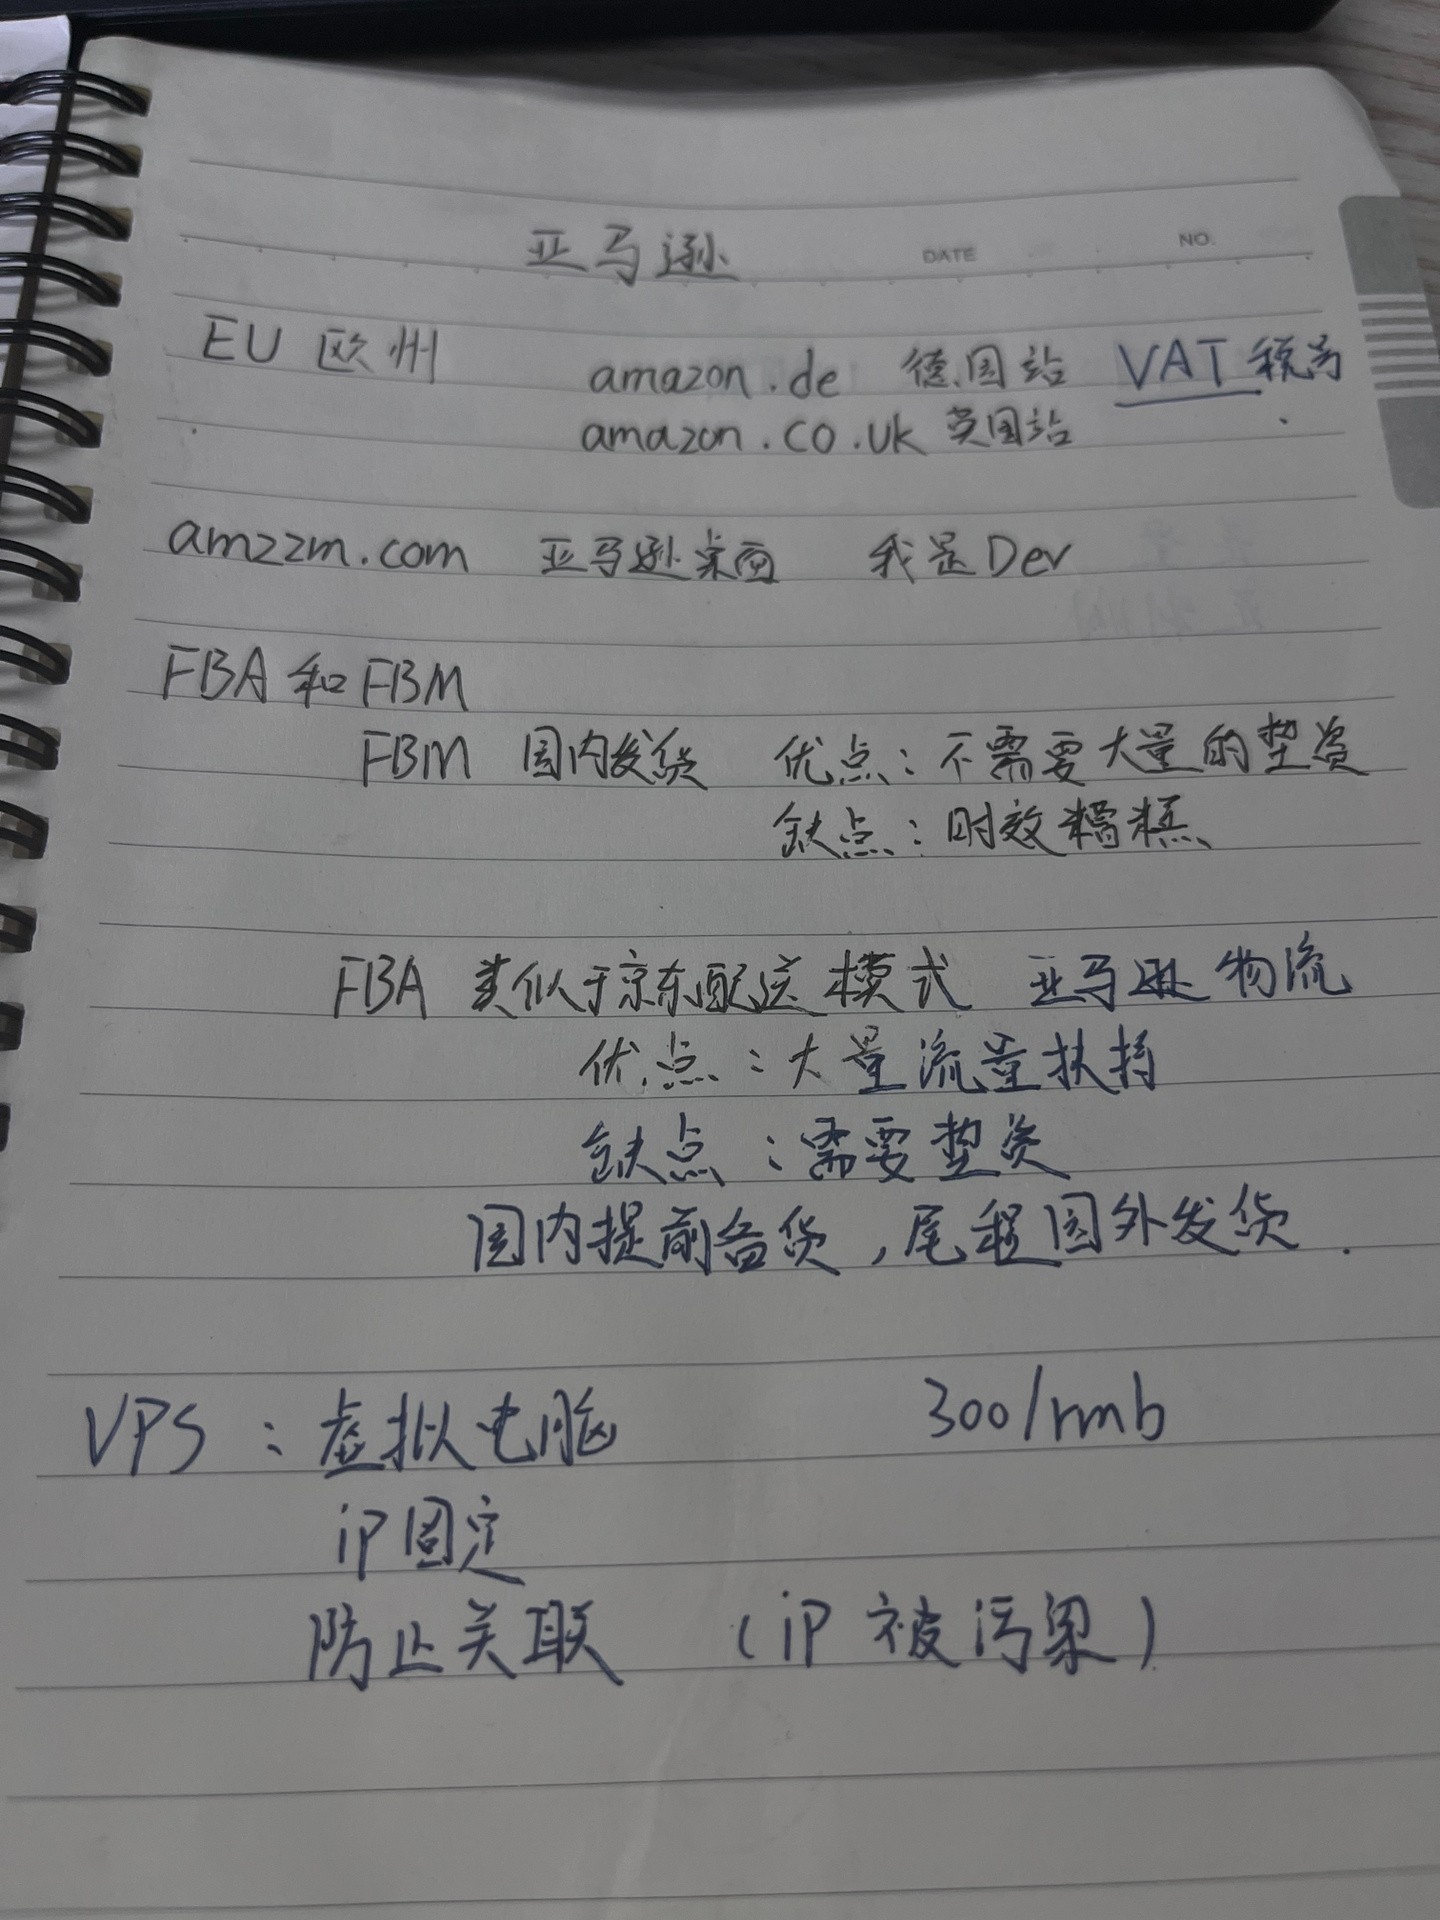 亚马逊 DATE NO.
EU 欧州 amazon.de 德国站 VAT 税号
amazon.co.uk 英国站
amzzm.com 亚马逊桌面 我是Dev
FBA 和 FBM
FBM 国内发货 优点：不需要大量的垫资
缺点：时效糟糕
FBA 类似于京东配送模式 亚马逊物流
优点：大量流量扶持
缺点：需要垫资
国内提前备货，尾程国外发货.
VPS：虚拟电脑 300/rmb
iP固定
防止关联 （iP 被污染）